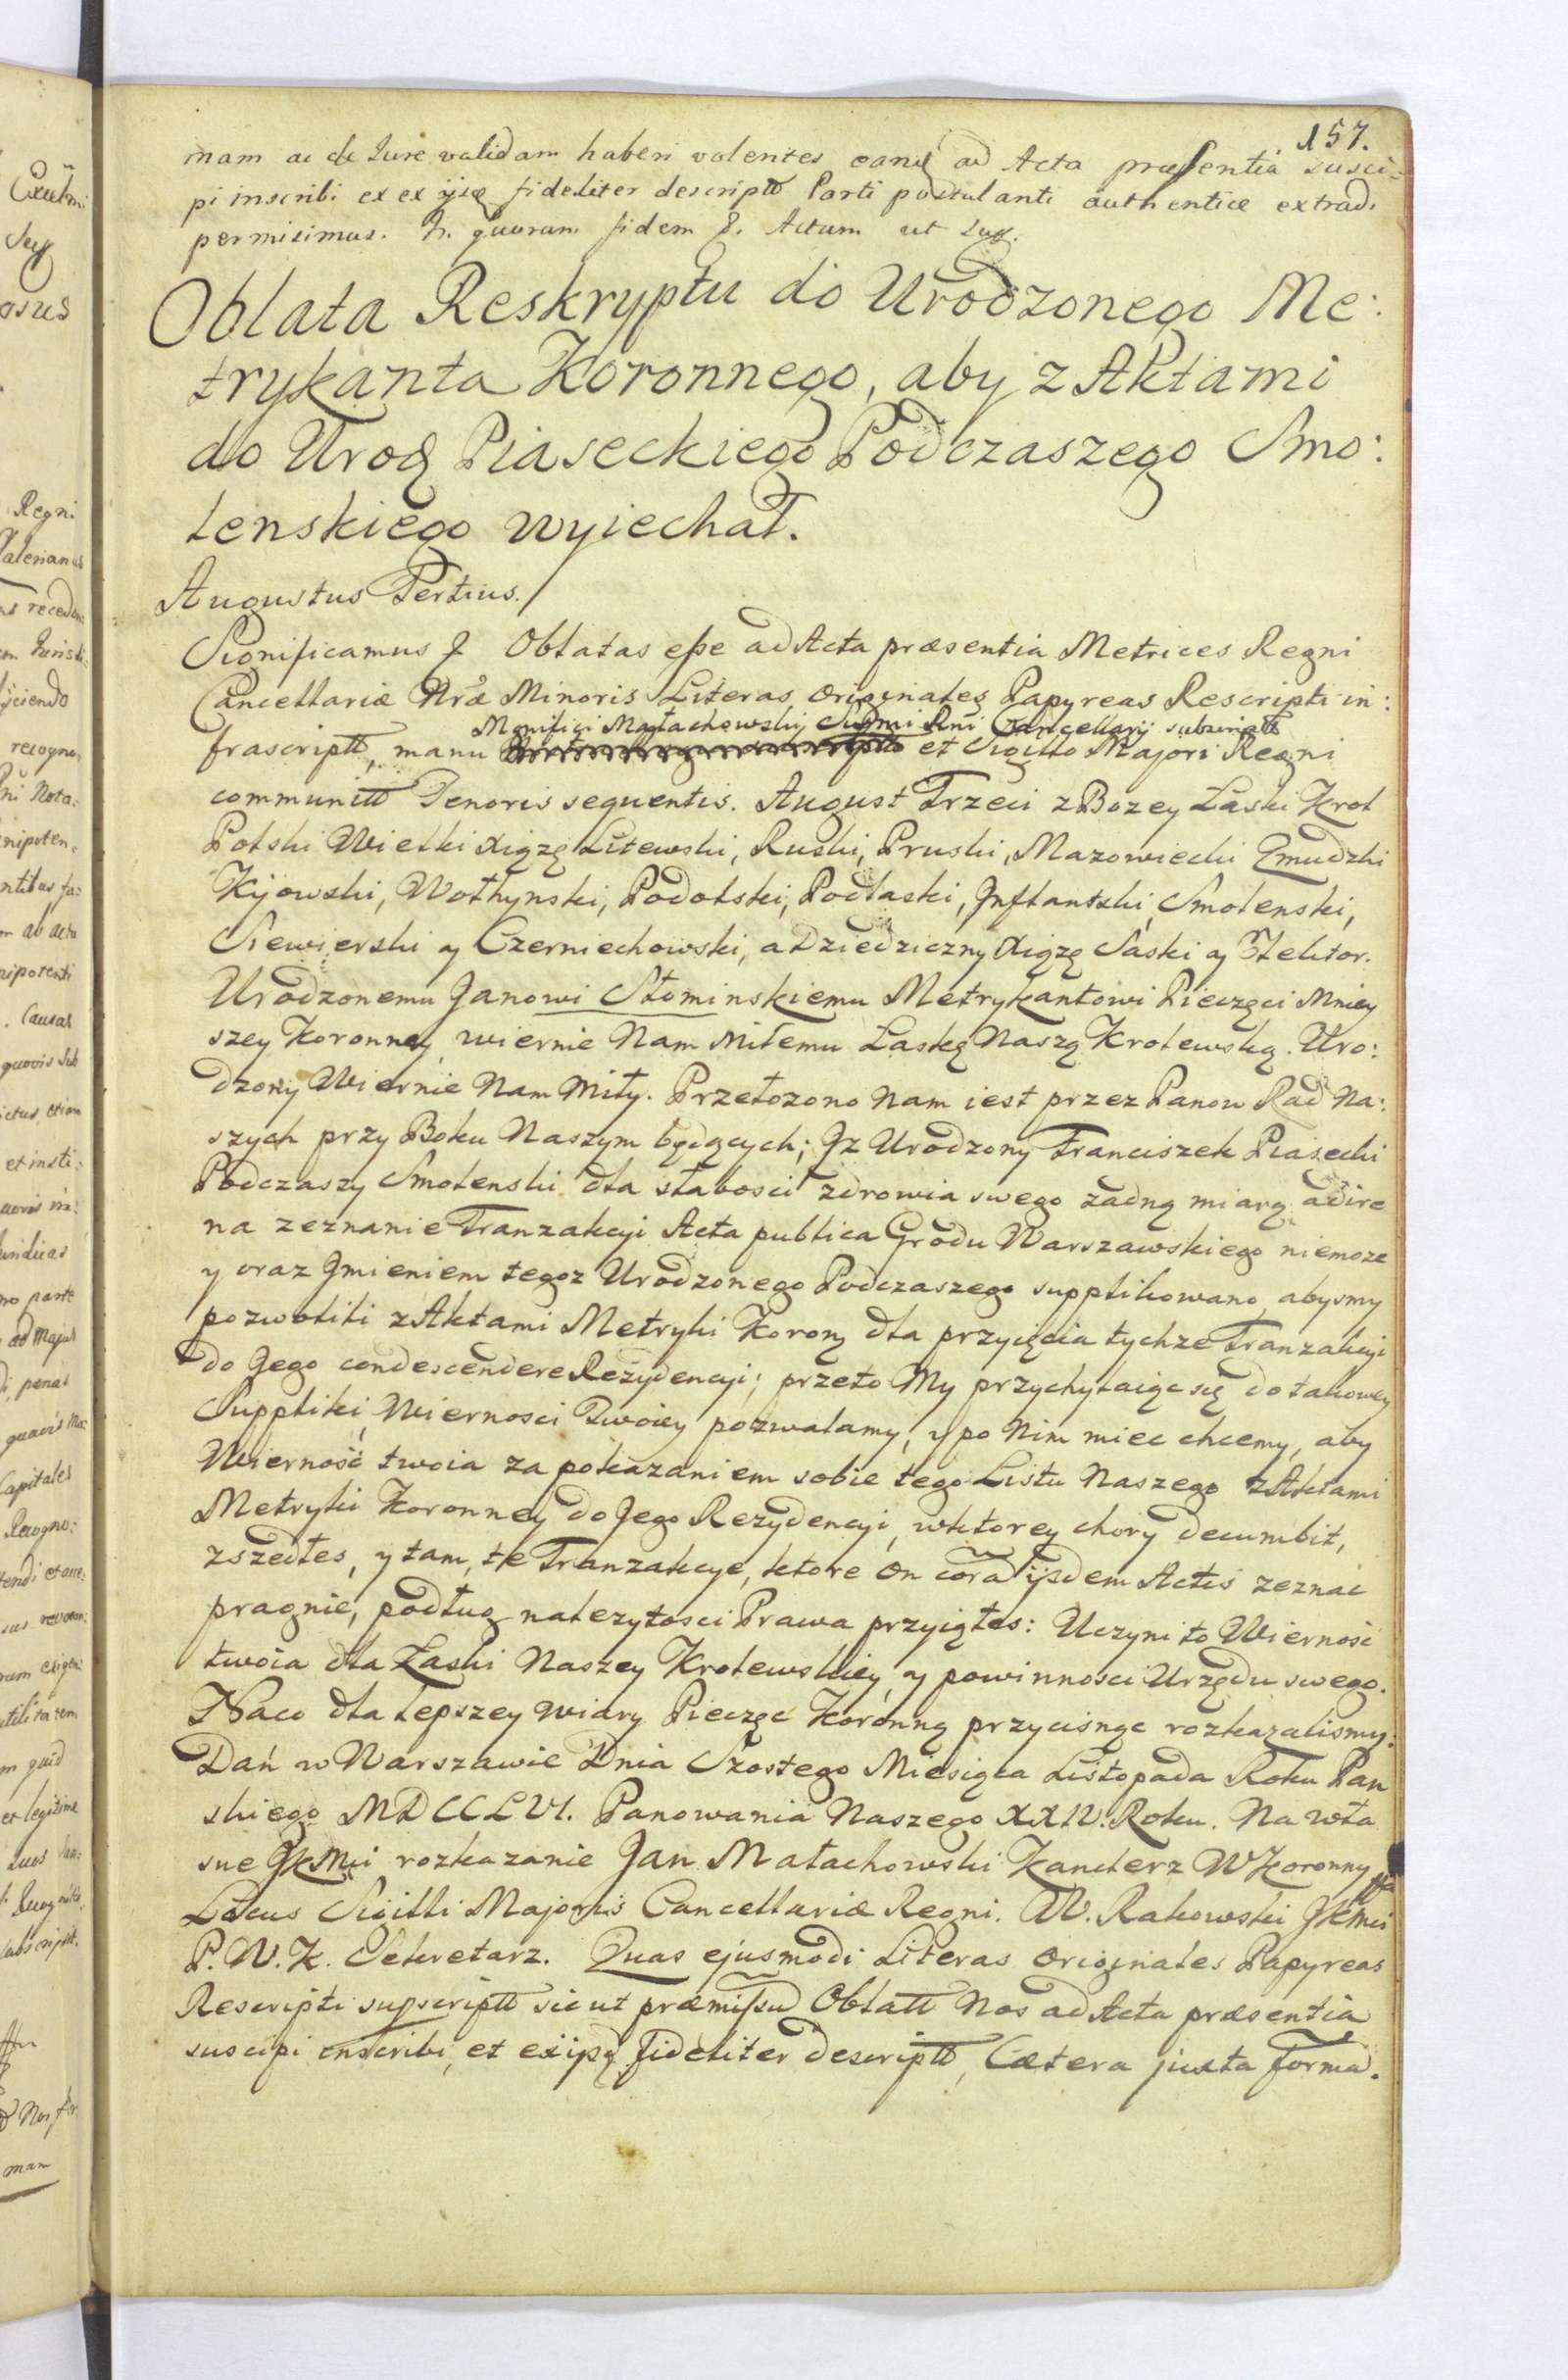 157.
mam ac de Jure validam haberi volentes eang ad Acta præsentia susci=
pi inscribi et ex ijsq fideliter descriptt Parti postulanti authentice extradi
permisimus. In quorum fidem &. Actum ut sup.
Oblata Reskryptu do Urodzonego Me:
trykanta Koronnego, aby z Aktami
do Urodz Piaseckiego Podczaszego Smo:
lenskiego wyiechał.
Augustus Tertius.
Significamus & Oblatas esse ad Acta præsentia Metrices Regni
Cancellariæ Nræ Minoris Literas Originales Papyreas Rescripti in:
Mgnifici Małachowskij Supmi Rni Cancellarij subscriptt
frascriptt, manu et Sigillo Majori Regni
communitt Tenoris sequentis. August Trzeci z Bozey Łaski Krol
Polski Wielki Xiążę Litewski, Ruski, Pruski, Mazowiecki Zmudzki
Kijowski, Wołhynski, Podolski, Podlaski, Jnflantski, Smolenski,
Siewierski y Czerniechowski, a Dziedziczny Xiążę Saski y Elektor.
Urodzonemu Janowi Słominskiemu Metrykantowi Pieczęci Mniey
szey Koronney, wiernie Nam Miłemu Łaskę Naszą Krolewską. Uro:
dzony Wiernie Nam Miły. Przełozono Nam iest przez Panow Rad Na:
szych przy Boku Naszym będących; Jz Urodzony Franciszek Piasecki
Podczaszy Smolenski dla słabosci zdrowia swego zadną miarą adire
na zeznanie Tranzakcyi Acta publica Grodu Warszawskiego niemoze
y oraz Jmieniem tegoz Urodzonego Podczaszego supplikowano, abysmy
pozwolili z Aktami Metryki Korony dla przyięcia tychze Tranzakcyi
do Jego condescendere Rezydencyi; przeto My przychylaiąc się do takowey
Suppliki, Wiernosci Twoiey pozwalamy, y po Nim miec chcemy, aby
Wierność twoia za pokazaniem sobie tego Listu Naszego z Aktami
Metryki Koronney do Jego Rezydencyi, wktorey chory decumbit,
zszedłes, y tam, te Tranzakcye, ktore on cora ijsdem Actis zeznac
pragnie, podług nalezytosci Prawa przyiąłes: Uczyni to Wierność
twoia dla Łaski Naszey Krolewskiey, y powinnosci Urzędu swego.
Naco dla lepszey wiary Pieczęc Koronną przycisnąc rozkazalismy.
Dań w Warszawie Dnia Szostego Miesiąca Listopada Roku Pan
skiego MDCCLVI. Panowania Naszego XXIV. Roku. Na wła
sne JKMci rozkazanie Jan Małachowski Kanclerz W Koronny
Locus Sigilli Majoris Cancellariæ Regni. W. Rakowski JKMci
P. W. K. Sekretarz. Quas ejusmodi Literas Originales Papyreas
Rescripti supscriptt sicut præmissũ Oblatt Nos ad Acta præsentia
suscipi inscribi, et exijsq fideliter descriptt, Cætera juxta formã.